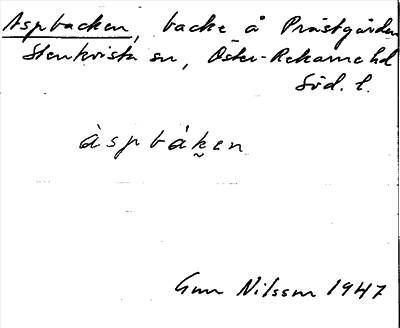 Aspbacken, backe å Prästgården
Stenkvista sn, Öster-Rekarne hd
Söd. l.
àspbák̬en
Gun Nilsson 1947